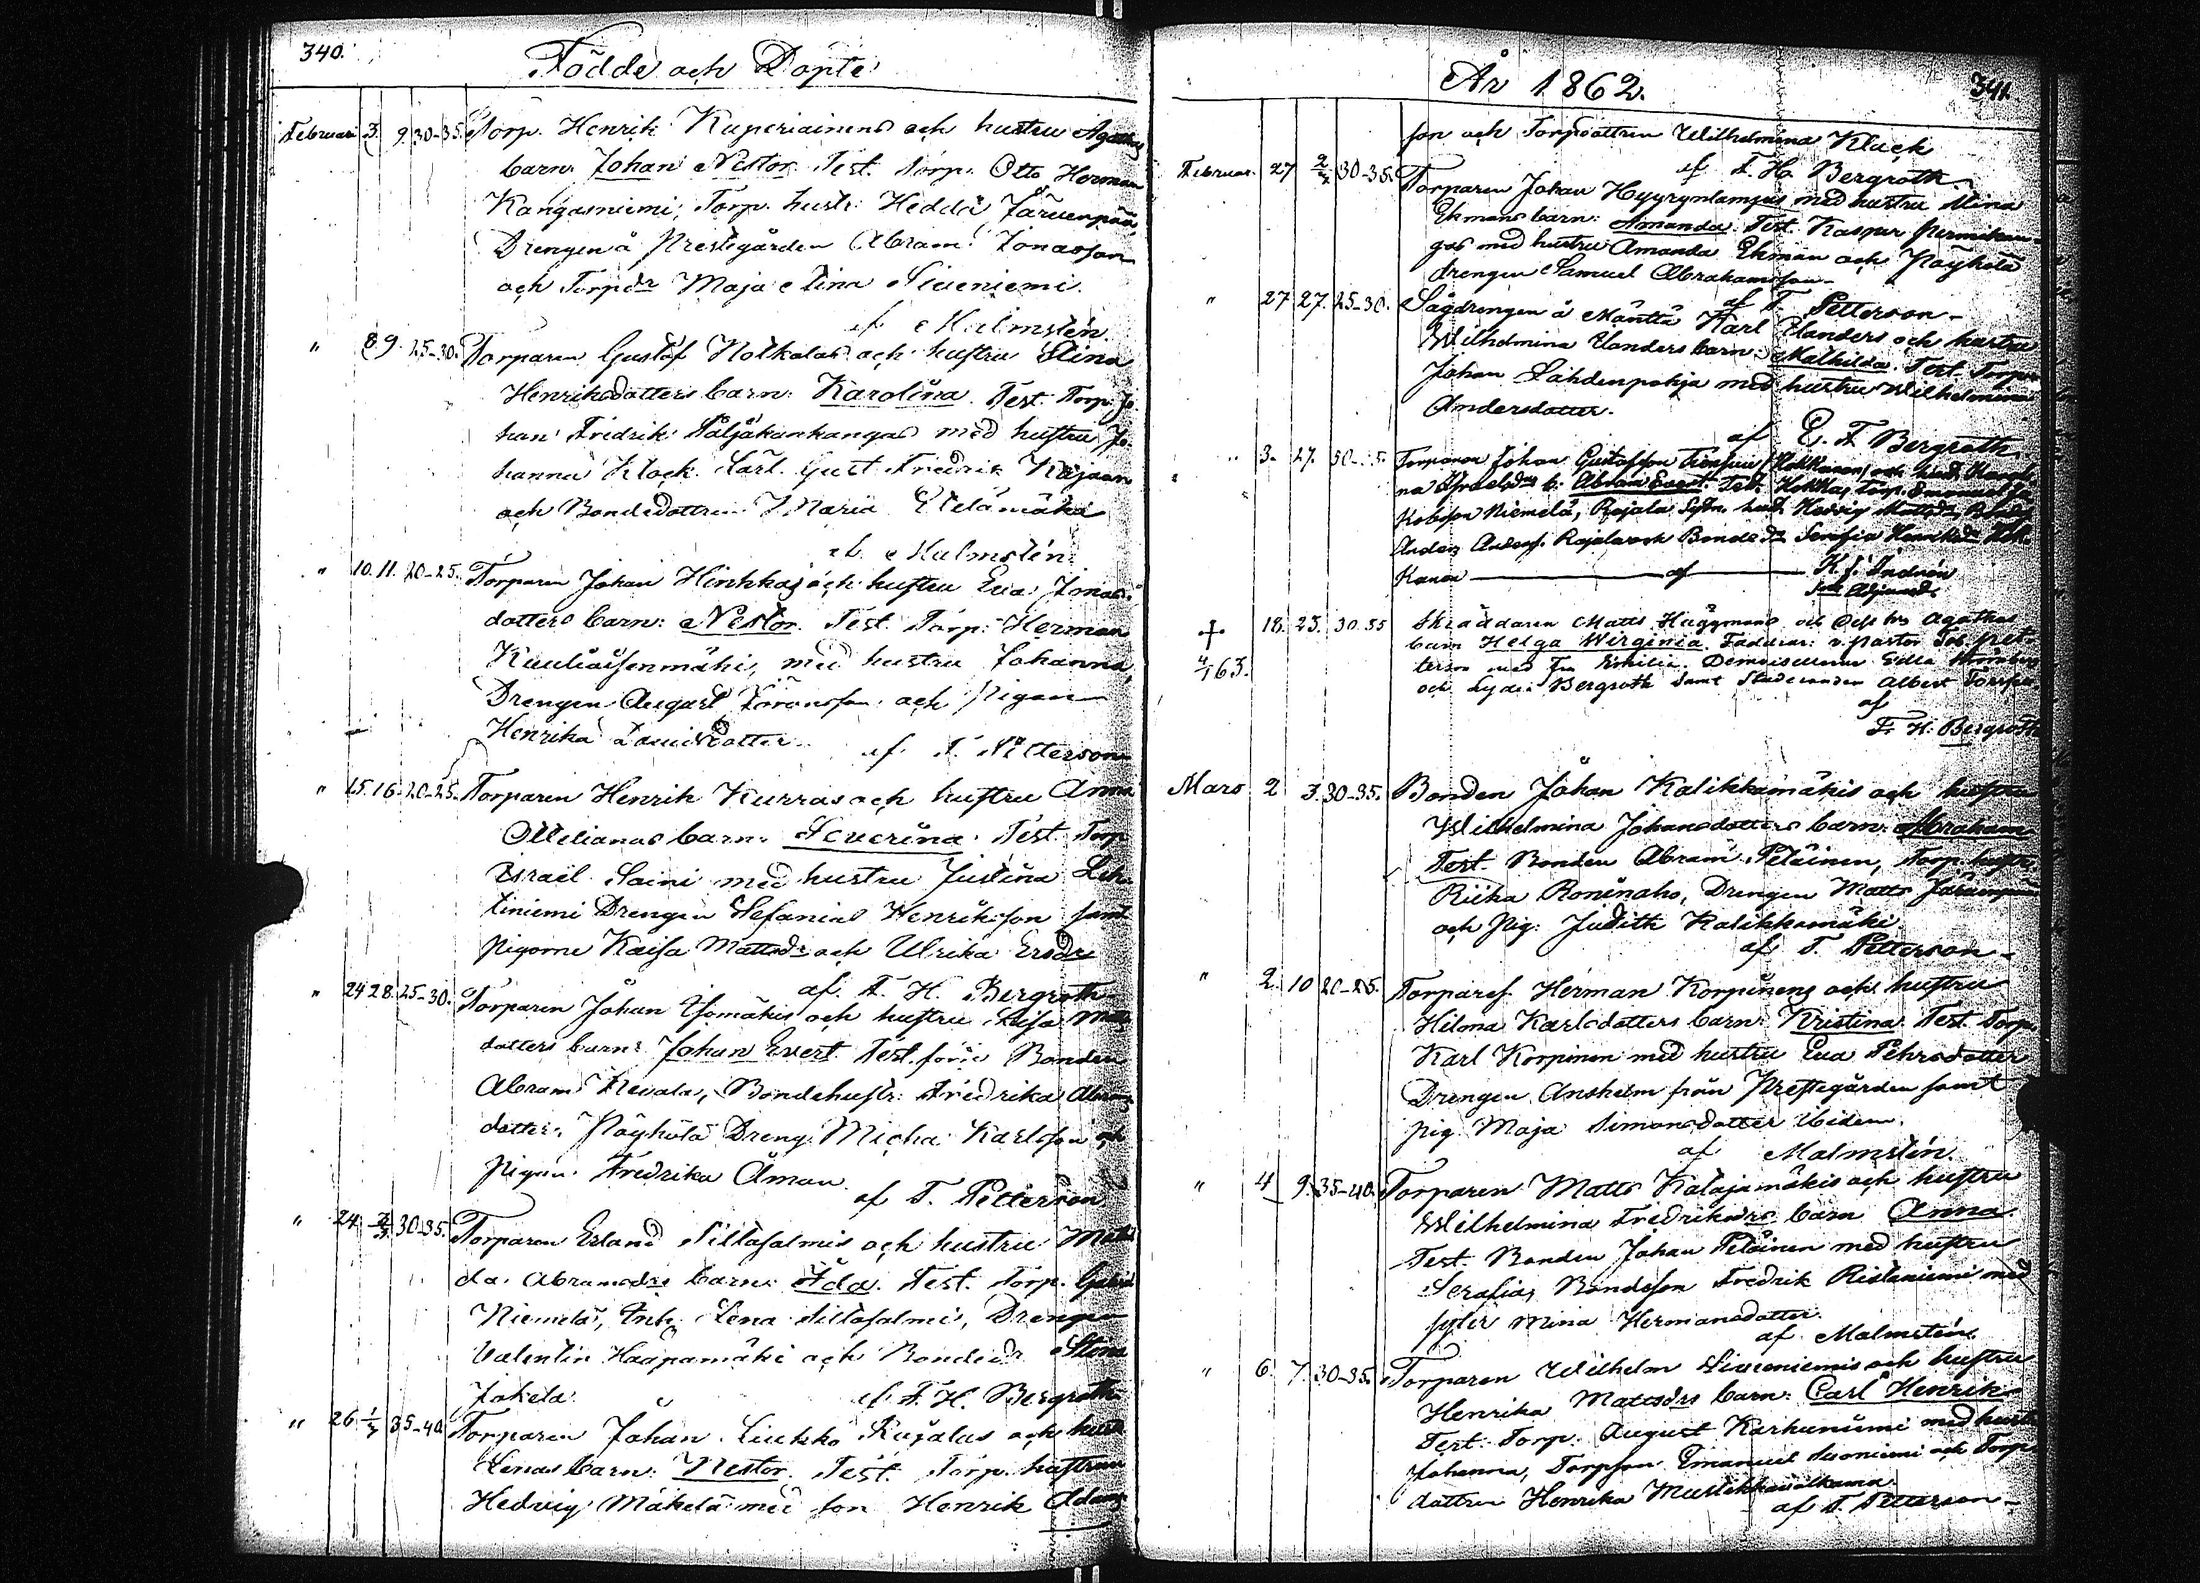 340.
Födde och Döpte
Februari 3. 9. 30-35. Torp. Henrik Kuperiainens och hustru Agathas
barn: Johan Nestor. Test. Torp. Otto Herman
Kangasniemi, Torp. hustr. Hedda Järvenpää,
Drengen å Prestgården Abram Jonasson
och Torpdr Maja Stina Siveniemi.
af Malmstén.
" 8 9. 25-30. Torparen Gustaf Kotkalas och hustru Stina
Henriksdotters barn: Karolina. Test. Torp. Jo-
han Fredrik med hustru Jo-
hanna Klock. Carl Gust. Fredrik
och Bondedottren Maria Etelämäki
af Malmstén.
" 10. 11. 20-25. Torparen Johan och hustru Eva Jonas-
dotters barn: Nestor. Test. Torp. Herman
med hustru Johanna,
Drengen August och Pigan
Henrika Davidsdotter. af T. Petterson
" 15. 16. 20-25. Torparen Henrik Kurras och hustru Anna
Ottilianas barn: Severina. Test. Torp
Israel Saini med hustru Justina Leh-
tiniemi Drengen Stefanias Henriksson samt
pigorne Kaisa Mattsdr och Ulrika Ersdr
af F. H. Bergroth
" 24 28. 25-30. Torparen Johan Isomäkis och hustru Lisa Matts-
dotters barn: Johan Evert. Test. Bonden
Abram Bondehustr. Fredrika Abrams-
dotter, Pöyhölä Dreng. Micha Karlsson och
Pigan Fredrika Åman
af T. Petterson
" 24. 2/3 30-35. Torparen Erland Sillasalmis och hustru
da Abramsdrs barn: Ida. Test. Torp.
Niemelä, Enk. Lena Sillasalmi, Drengen
Valentin Haapamäki och Bondedr Stina
Jokela. af F. H. Bergroth
" 26. 1/3 35-40. Torparen Johan Liukko Rajalas och hustr
Lenas barn: Nestor. Test. Torp. hustrun
Hedvig Mäkelä med son Henrik
År 1862.
341.
son och Torpdottren Wilhelmina Klock
af F. H. Bergroth
Februar. 27 2/3 30-35. Torparen Johan Hyyrynlampis med hustru Mina
Ekmans barn: Amanda. Test. Kaspar
gas med hustru Amanda Ekman och Pöyhölä
drengen Samuel Abrahamsson
af T. Petterson
" 27 27. 25-30. Sågdrengen å Mänttä Karl Elanders och hustru
Wilhelmina Elanders barn: Mathilda. Test. Torp.
Johan Lähdenpohja med hustru Wilhelmina
Andersdotter.
af E. F. Bergroth
" 3. 27. Torparen Johan Gustafsson och hust.
na Israelsdrs b. Abram Evert. Test. Torp. Emanuel Ja-
kobsson Niemelä, Rajala hust. Hedvig
Anders Anderss. Rajala och Bondedr Serafia Henriksdr
af K. J.
+ 4/1 63. 18. 23. 30-35 Skräddaren Matts Häggmans och Agathas
barn Helga Wirginia. Faddrar: v. Pastor Tob. Pet-
terson med Fru Emilia. Demoisellerna Edla
och Lydia Bergroth samt Studeranden Albert
af
F. H. Bergroth
Mars 2 3. 30-35. Bonden Johan Kalikkamäkis och hustru
Wilhelmina Johansdotters barn: Abraham
Test. Bonden Abram Peläinen, Torp. hustr
Riika Roninaho, Drengen Matts
och Pig. Judith Kalikkamäki.
af T. Petterson
" 2. 10 20-25. Torpares. Herman Korpinens och hustru
Hilma Karlsdotters barn: Kristina. Test. Torp.
Karl Korpinen med hustru Eva Pehrsdotter
Drengen Anshelm från Prestgården samt
pig. Maja Simonsdotter ibidem.
af Malmstén.
" 4 9. 35-40. Torparen Matts Katajamäkis och hustru
Wilhelmina Fredriksdrs barn Anna.
Test. Bonden Johan Peläinen med hustru
Serafia, Bondeson Fredrik Ristaniemi med
syster Mina Hermansdotter.
af Malmstén.
" 6. 7. 30-35. Torparen Wilhelm Siveniemis och hustru
Henrika Mattsdrs barn: Carl Henrik
Test. Torp. August Karhuniemi med hustr
Johanna, Torpson Emanuel och Torp-
dottren Henrika
af T. Petterson